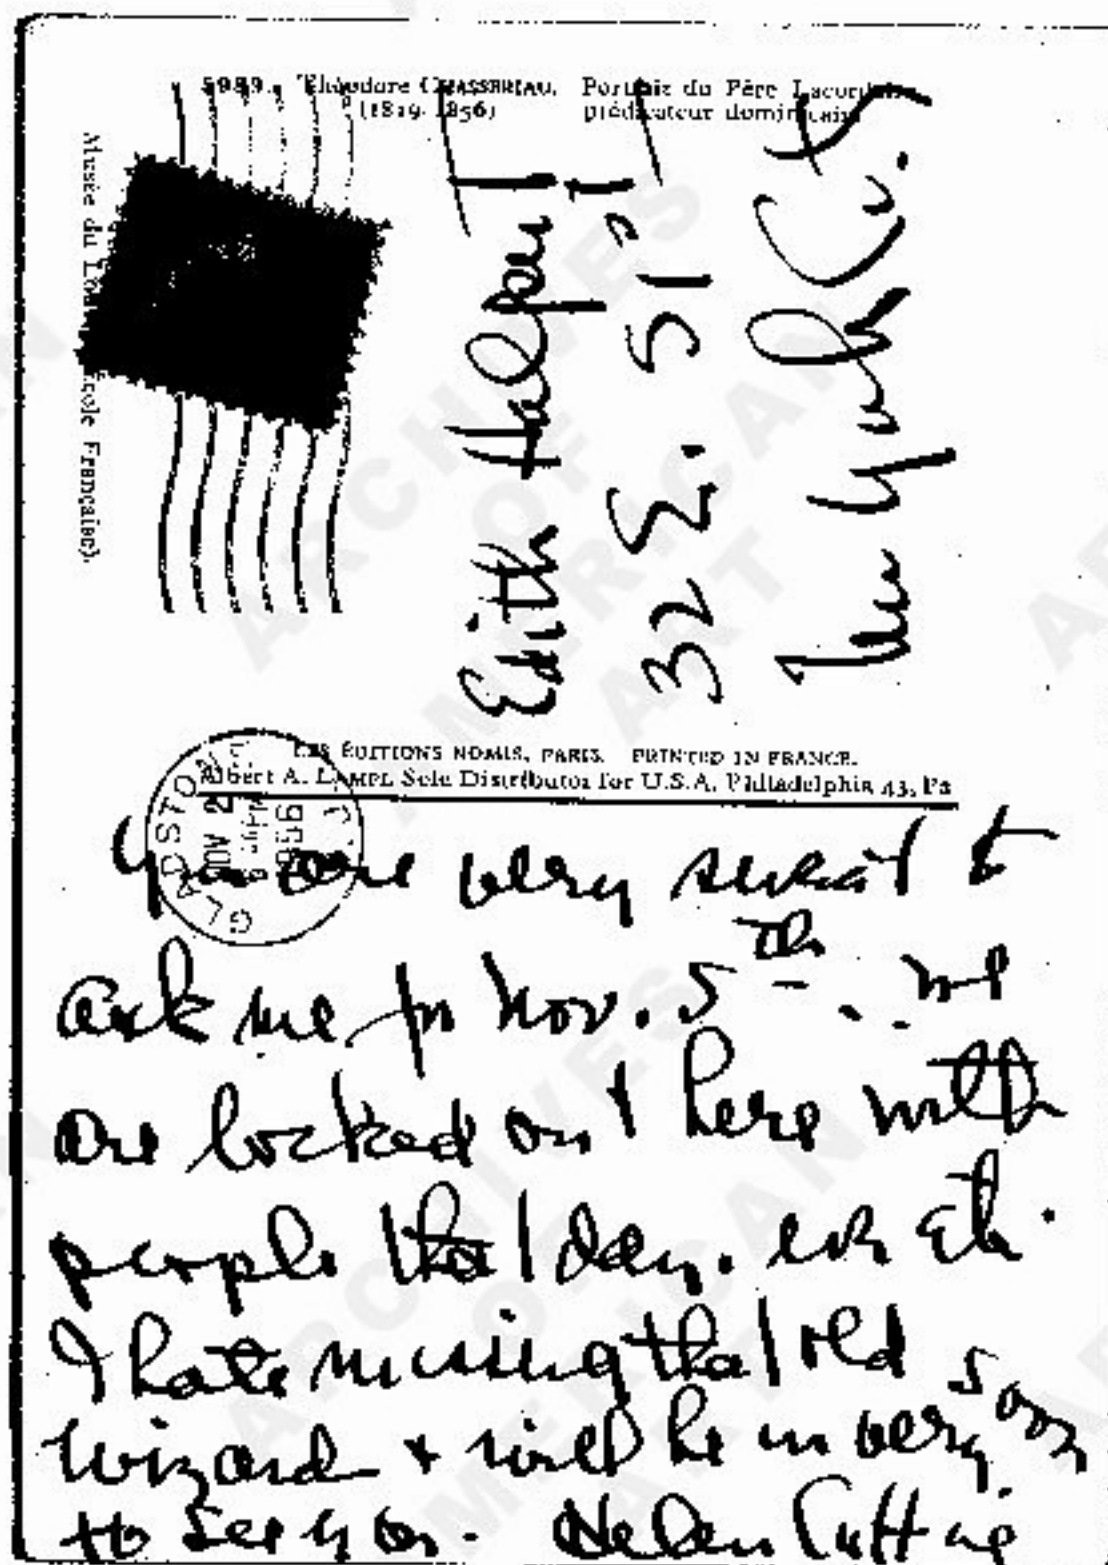 5989. Théodore CHASSERIAU. Portrait du Père Lacordaire
(1819-1856) prédicateur dominicain
Musée du Louvre École Française).
Edith Halpert
32 E. 51st
New York City
LES ÉDITIONS NOMIS, PARIS. PRINTED IN FRANCE.
Albert A. LAMPL Sole Distributor for U.S.A. Philadelphia 43, Pa
GLADSTONE N.J.
NOV 2
PM
1956
You are very sweet to
ask me for Nov. 5th. We
are locked out here with
people that day.
I hate missing that old
wizard & will be in very soon
to see you. Helen Cutting
ARCHIVES
OF
AMERICAN
ART
ARCHIVES
OF
AMERICAN
ART